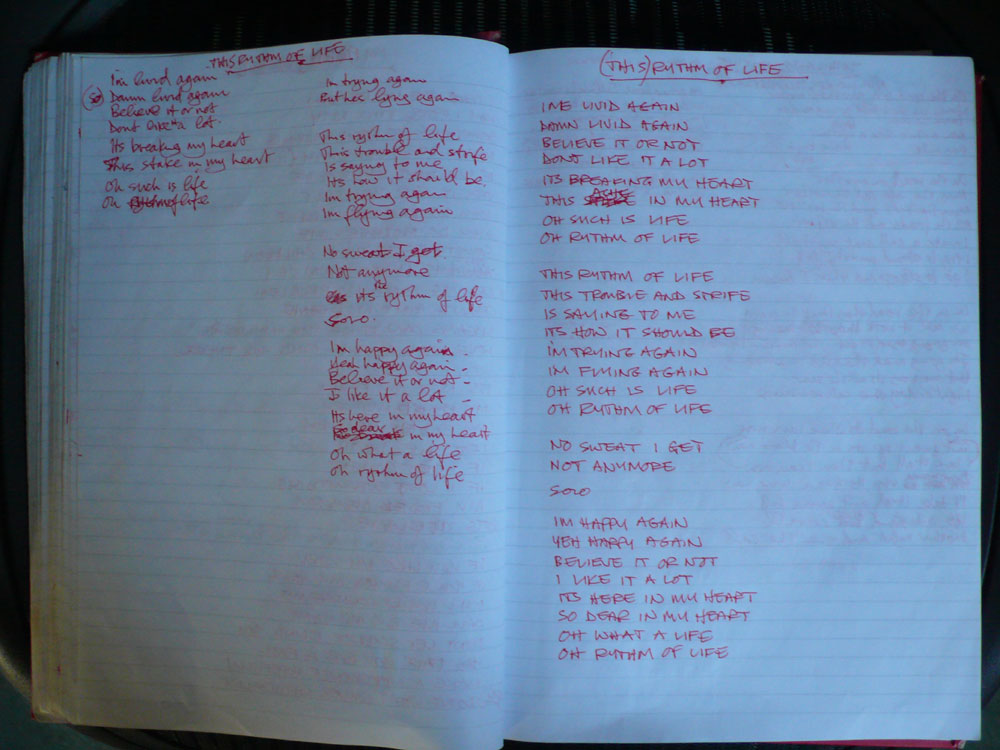 THIS RYTHM OF LIFE
Im livid again
(so) Damn livid again
Believe it or not
Dont like a lot.
Its breaking my heart
This stake in my heart
Oh such is life
Oh rythm of life
Im trying again
But hes lying again
This rythm of life
This trouble and strife
Is saying to me
Its how it should be.
Im trying again
Im flying again
No sweat I get
Not anymore
its the rythm of life
Solo.
Im happy again -
Yeah happy again -
Believe it or not -
I like it a lot -
Its here in my heart
So dear in my heart
Oh what a life
Oh rythm of life
(THIS) RYTHM OF LIFE
IME LIVID AGAIN
DAMN LIVID AGAIN
BELIEVE IT OR NOT
DONT LIKE IT A LOT
ITS BREAKING MY HEART
THIS ACHE IN MY HEART
OH SUCH IS LIFE
OH RYTHM OF LIFE
THIS RYTHM OF LIFE
THIS TROUBLE AND STRIFE
IS SAYING TO ME
ITS HOW IT SHOULD BE
IM TRYING AGAIN
IM FLYING AGAIN
OH SUCH IS LIFE
OH RYTHM OF LIFE
NO SWEAT I GET
NOT ANYMORE
SOLO
IM HAPPY AGAIN
YEH HAPPY AGAIN
BELIEVE IT OR NOT
I LIKE IT A LOT
ITS HERE IN MY HEART
SO DEAR IN MY HEART
OH WHAT A LIFE
OH RYTHM OF LIFE